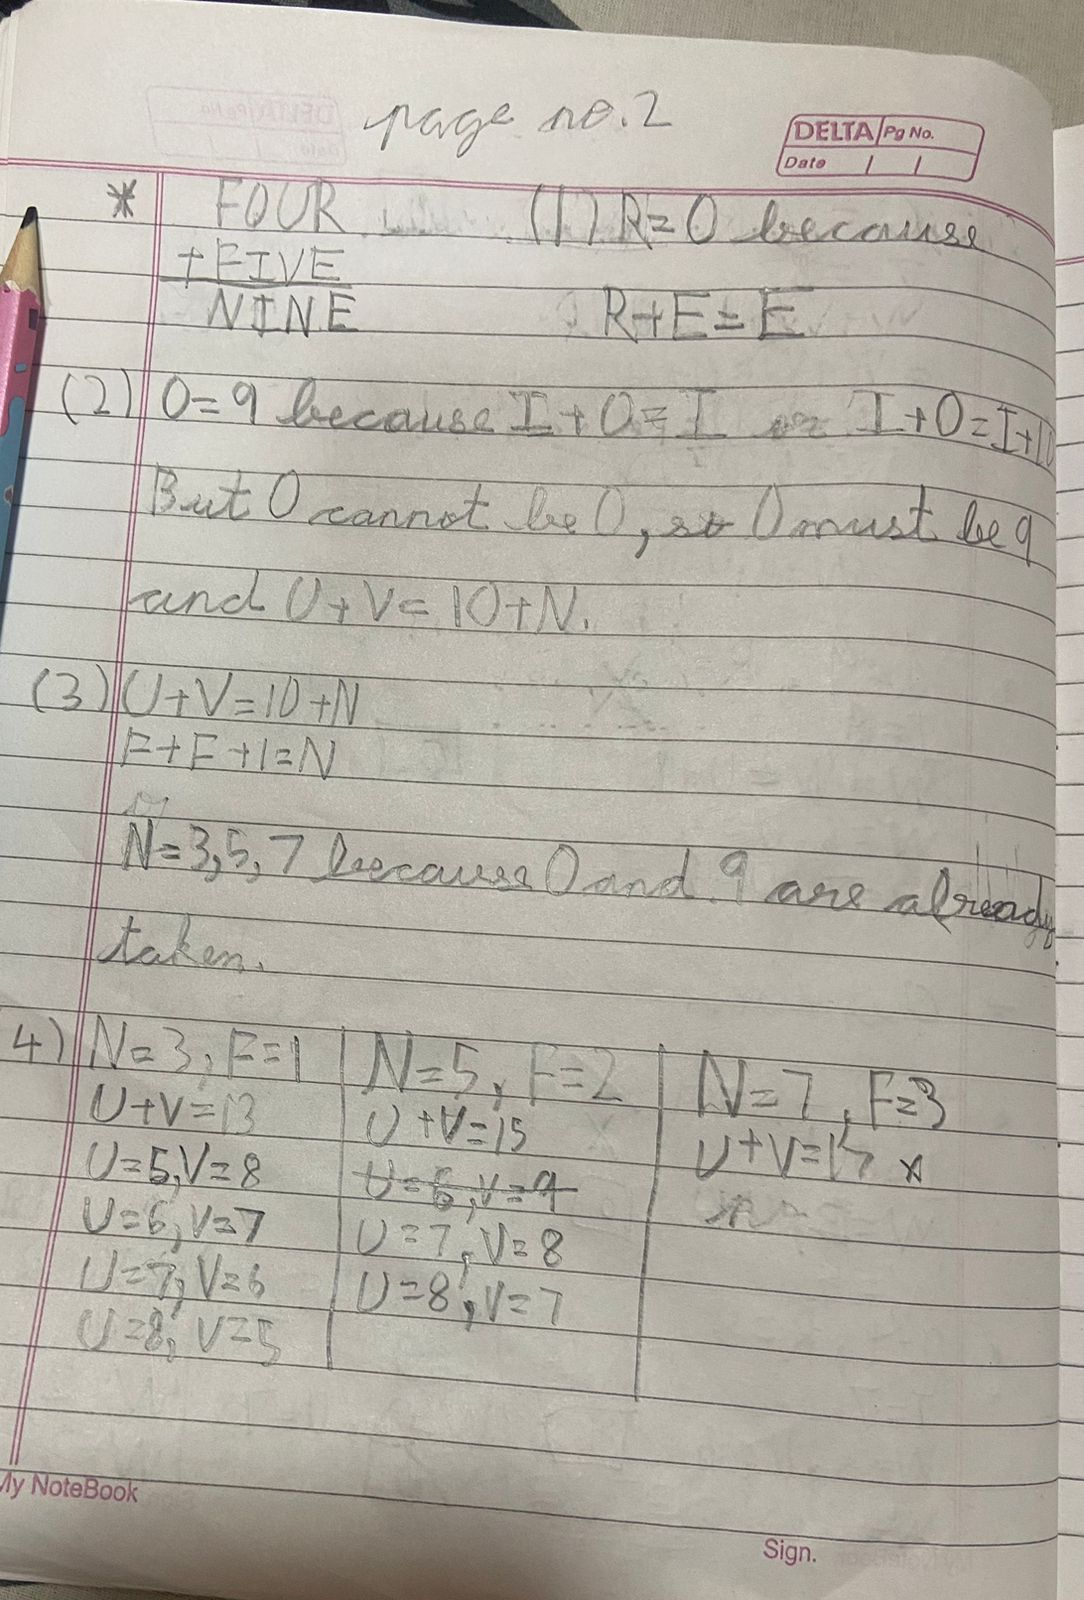 page no.2
DELTA Pg No.
Date / /
* FOUR (1) R=0 because
+FIVE
NINE R+E=E
(2) O=9 because I+O=I or I+O=I+10
But O cannot be 0, so O must be 9
and U+V=10+N.
(3) U+V=10+N
F+F+1=N
N=3,5,7 because 0 and 9 are already
taken.
4) N=3, F=1 N=5, F=2 N=7, F=3
U+V=13 U+V=15 U+V=17 x
U=5,V=8 U=6,V=9
U=6, V=7 U=7, V=8
U=7, V=6 U=8, V=7
U=8, V=5
My NoteBook
Sign.